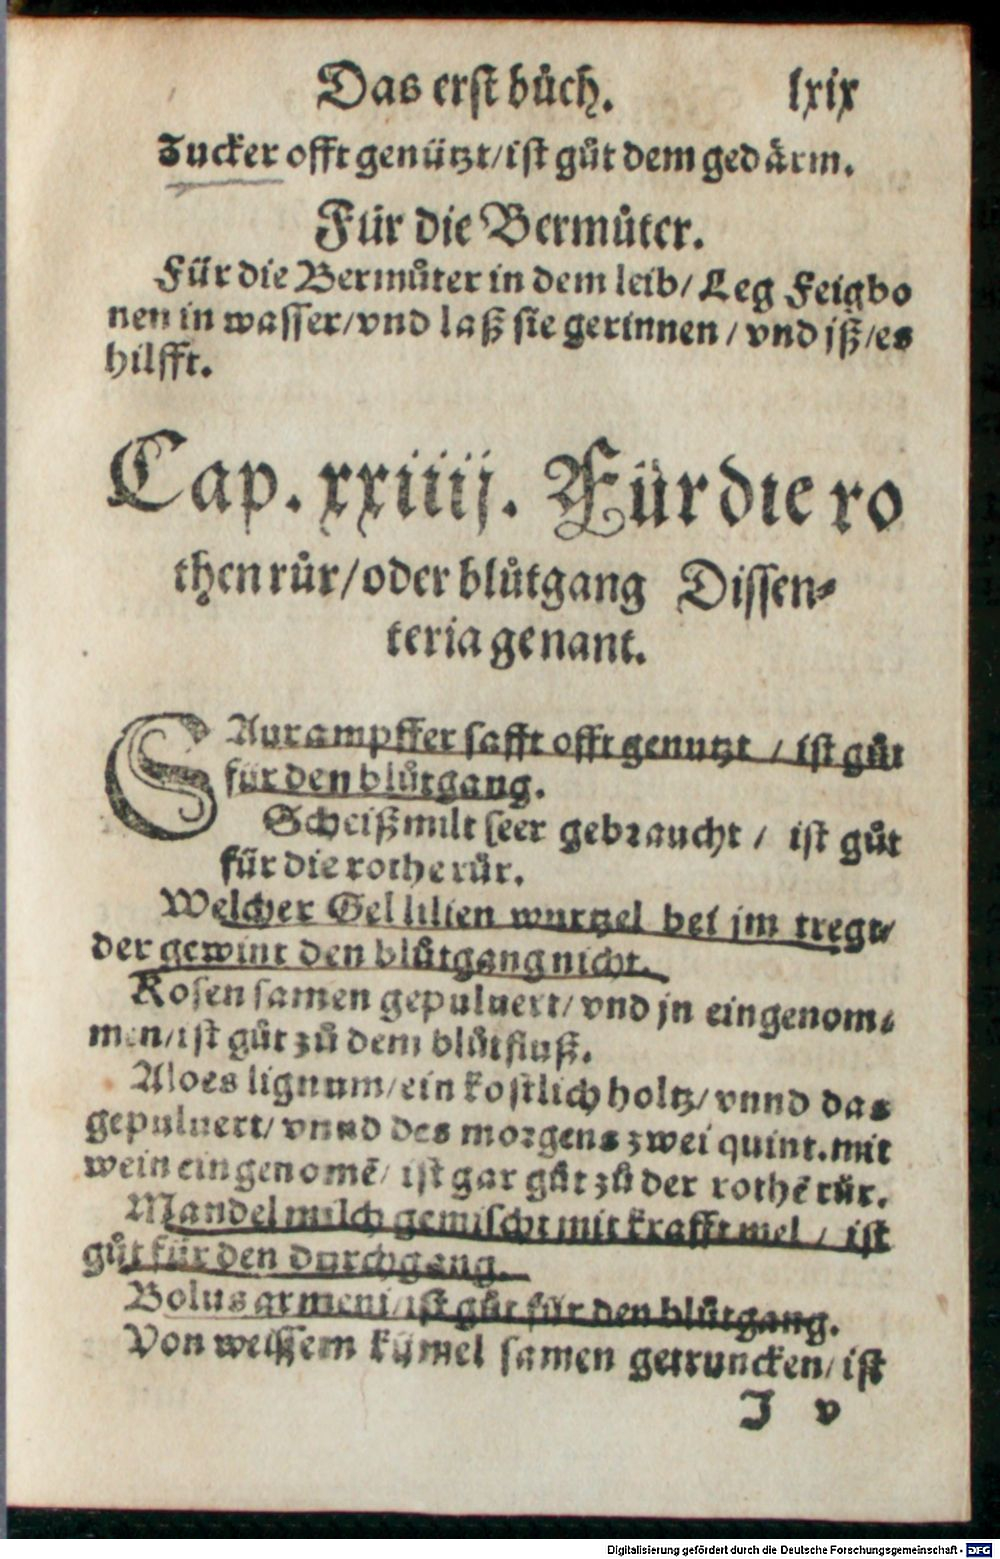 Das erst bůch. lxix
Zucker offt genützt/ist gůt dem gedärm.
Für die Bermůter.
Für die Bermůter in dem leib/ Leg Feigbo
nen in wasser/vnd laß sie gerinnen/vnd jß/es
hilfft.
Cap. xxiiij. Für die ro
then růr/oder blůtgang Dissen⸗
teria genant.
SAurampffer safft offt genutzt / ist gůt
für den blůtgang.
Scheißmilt seer gebraucht / ist gůt
für die rothe růr.
Welcher Gel lilien wurtzel bei jm tregt/
der gewint den blůtgang nicht.
Rosen samen gepuluert/vnd jn eingenom⸗
men/ist gůt zů dem blůtfluß.
Aloes lignum/ein kostlich holtz/vnnd das
gepuluert/vnnd des morgens zwei quint. mit
wein eingenomē/ ist gar gůt zů der rothē růr.
Mandel milch gemischt mit krafft mel / ist
gůt für den durchgang.
Bolus armeni/ist gůt für den blůtgang.
Von weissem kümel samen getruncken/ist
J v
Digitalisierung gefördert durch die Deutsche Forschungsgemeinschaft - DFG